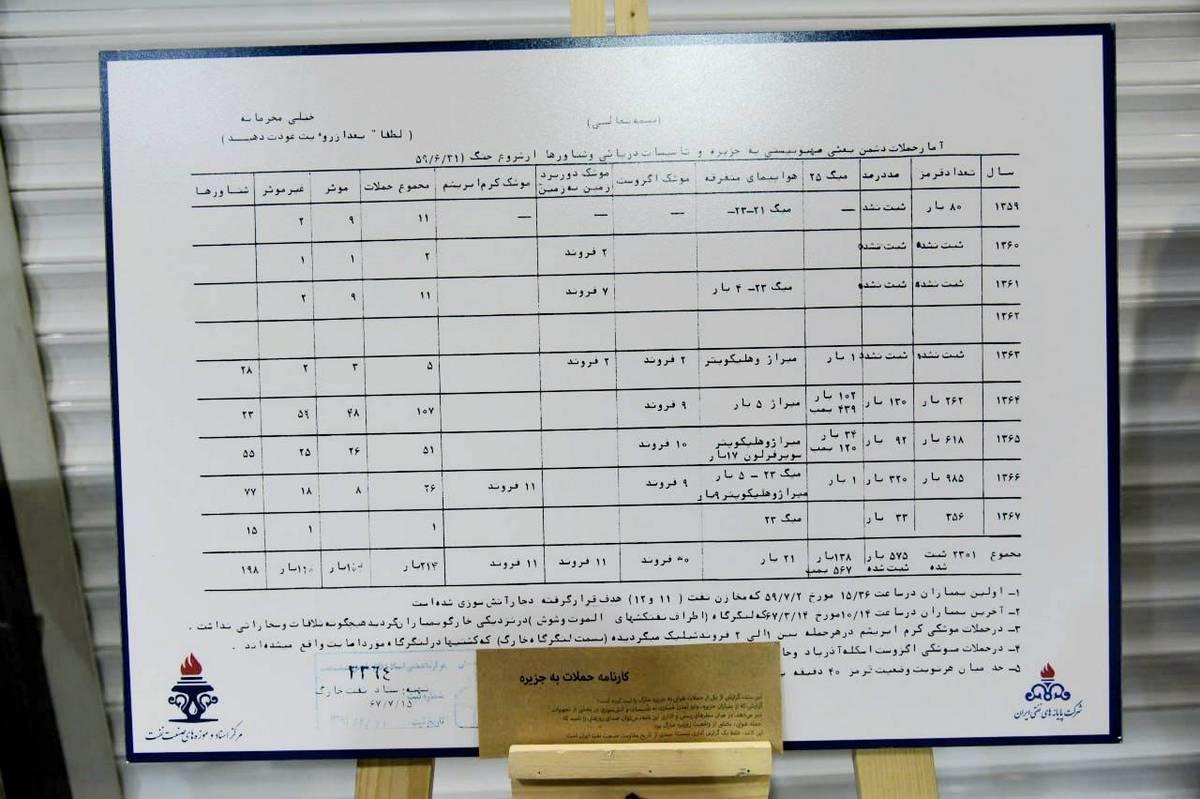 بسمه تعالی)
خیلی محرمانه
( لطفا" بعدا زرو‌ٔیت عودت دهید )
آمارحملات دشمن بعثی صهیونیستی به جزیره و تاسیسات دریائی وشناورها ازشروع جنگ (۵۹/۶/۳۱
سال تعدادقرمز عددرمد میگ ۲۵ هواپیمای متفرقه موشک اگزوست موشک دوربرد زمین به زمین موشک کرم ابریشم مجموع حملات موثر غیرموثر شناورها
۱۳۵۹ ۸۰ بار ثبت نشد — میگ ۲۱-۲۳- — — — ۱۱ ۹ ۲
۱۳۶۰ ثبت نشده ثبت نشده ۲ فروند ۲ ۱ ۱
۱۳۶۱ ثبت نشده ثبت نشده میگ ۲۳- ۴ بار ۷ فروند ۱۱ ۹ ۲
۱۳۶۲
۱۳۶۳ ثبت نشده ثبت نشده ۱ بار میراژ وهلیکوپتر ۲ فروند ۲ فروند ۵ ۳ ۲ ۲۸
۱۳۶۴ ۲۶۲ بار ۱۳۰ بار ۱۰۲ بار ۴۳۹ بمب میراژ ۵ بار ۹ فروند ۱۰۷ ۴۸ ۵۹ ۲۳
۱۳۶۵ ۶۱۸ بار ۹۲ بار ۳۴ بار ۱۲۰ بمب میراژوهلیکوپتر سوپرفرلون ۱۷بار ۱۰ فروند ۵۱ ۲۶ ۲۵ ۵۵
۱۳۶۶ ۹۸۵ بار ۳۲۰ بار ۱ بار میگ ۲۳ - ۵ بار میراژوهلیکوپتر ۹بار ۹ فروند ۱۱ فروند ۲۶ ۸ ۱۸ ۷۷
۱۳۶۷ ۳۵۶ ۳۳ بار میگ ۲۳ ۱ ۱ ۱۵
مجموع ۲۳۰۱ ثبت شده ۵۷۵ بار ثبت شده ۱۳۸بار ۵۶۷ بمب ۲۱ بار فروند ۱۱ فروند ۱۱ فروند ۲۱۴بار بار بار ۱۹۸
۱- اولین بمباران درساعت ۱۵/۳۶ مورخ ۵۹/۷/۲ که مخازن نفت ( ۱۱ و۱۲) هدف قرارگرفته دچارآتش سوزی شده است
۲- آخرین بمباران درساعت ۱۰/۱۴مورخ ۶۷/۳/۱۴که لنگرگاه (اطراف نفتکشهای الموت وشوش )درنزدیکی خارگ بمباران گردیدهیچگونه تلفات وخساراتی نداشت .
۳- درحملات موشکی کرم ابریشم درهرحمله بین ۱الی ۲ فروندشلیک میگردیده (بسمت لنگرگاه خارگ) که کشتیها درلنگرگاه مورداصابت واقع میشده اند .
۴- درحملات موشکی اگزوست اسکله آذرپاد
۵- حد میان هرنوبت وضعیت قرمز ۴۰ دقیقه
۲۳۶۴
تهیه: ستاد نفت خارگ
۶۷/۷/۱۵
شماره ثبت
تاریخ ثبت
کارنامه حملات به جزیره
مرکز اسناد و موزه های صنعت نفت
شرکت پایانه های نفتی ایران